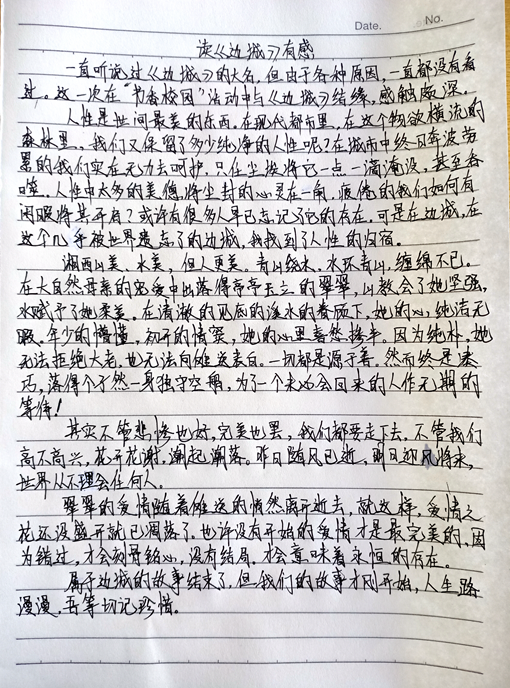 Date.
No.
读《边城》有感
一直听说过《边城》的大名,但由于各种原因,一直都没有看
过。这一次在“书香校园”活动中与《边城》结缘,感触颇深。
人性是世间最美的东西。在现代都市里,在这个物欲横流的
森林里,我们又保留了多少纯净的人性呢?在城市中终日奔波劳
累的我们实在无力去呵护,只任尘埃将它一点一滴淹没,甚至吞
噬。人性中太多的美德将尘封的心灵在一角,疲倦的我们如何有
闲暇将其开启?或许有很多人早已忘记了它的存在。可是在边城,在
这个几乎被世界遗忘了的边城,我找到了人性的归宿。
湘西山美、水美,但人更美。青山绕水,水环青山,缠绵不已。
在大自然母亲的宠爱中出落得亭亭玉立的翠翠,山教会了她坚强,
水赋予了她柔美。在清澈的见底的溪水的养质下,她的心,纯洁无
瑕。年少的懵懂,初开的情窦,她的心里喜愁掺半。因为纯朴,她
无法拒绝大老,也无法向傩送表白。一切都是源于善,然而终寻凑
巧,落得个孑然一身独守空船,为了一个未必会回来的人作无期的
等待!
其实不管悲惨也好,完美也罢,我们都要走下去,不管我们
高不高兴,花开花谢,潮起潮落。昨日随风已逝,明日迎风将来,
世界从不理会任何人。
翠翠的爱情随着傩送的悄然离开逝去,就这样,爱情之
花还没盛开就已凋落了。也许没有开始的爱情才是最完美的,因
为错过,才会刻骨铭心,没有结局,才会意味着永恒的存在。
属于边城的故事结束了,但我们的故事才刚开始,人生路
漫漫,吾等切记珍惜。